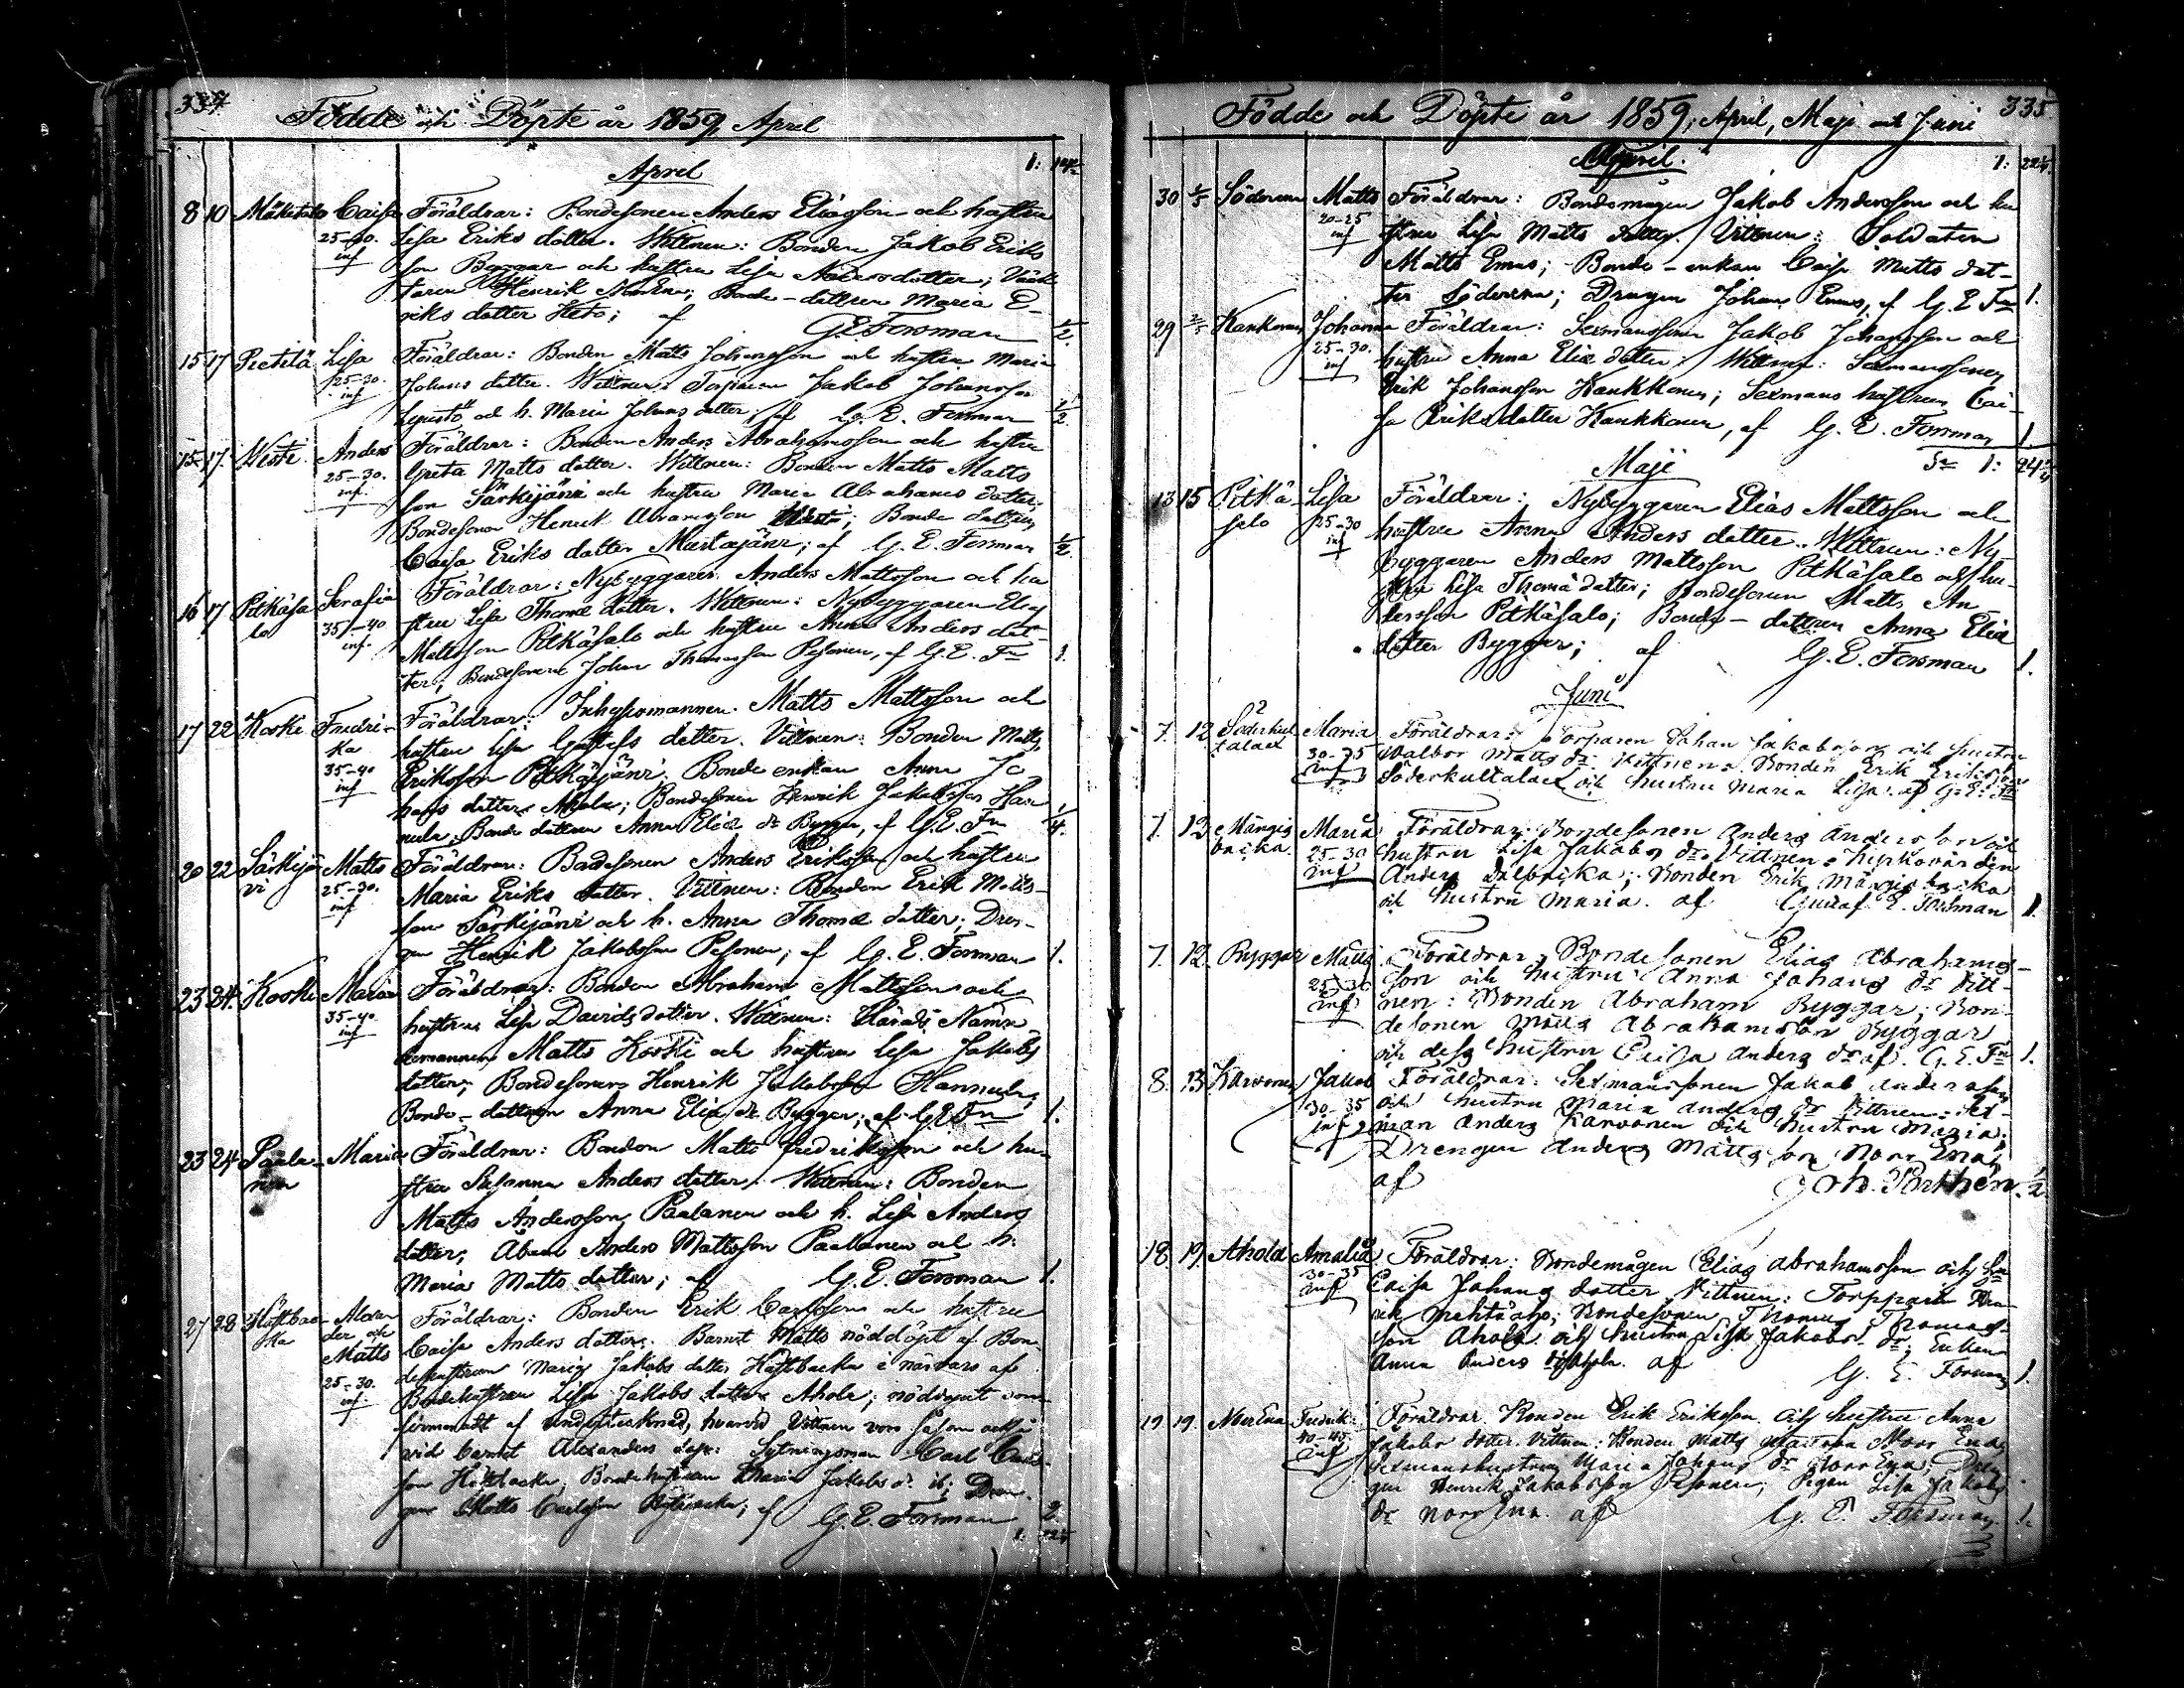 334
Födde och Döpte år 1859, April
April
8 10 Mäkitalo Caisa Föräldrar: Bondesonen Anders Eliasson och hustru
25-30. Lisa Eriks dotter. Wittnen: Bonden Jakob Eriks
inf son Byggar och hustru Lisa Andersdotter;
Henrik; Bonde-dottren Maria E-
riks dotter Keto; af G.E. Forsman 1/2.
15 17 Pietilä Lisa Föräldrar: Bonden Matts Johansson och hustru Maria
25-30. Johans dotter. Wittnen: Torparen Jakob Johansson
inf. och h. Maria Johans dotter; af G. E. Forsman 1/2
15 17. Wisti Anders Föräldrar: Bonden Anders Abrahamsson och hustru
25-30. Greta Matts dotter. Wittnen: Bonden Matts Matts
inf. son Särkijärvi och hustru Maria Abrahams dotter;
Bondesonen Henrik Abramsson Wisti; Bonde dottren
Caisa Eriks dotter Mustajärvi; af G. E. Forsman 1/2.
16 17 Pitkäsa Serafia Föräldrar: Nybyggaren Anders Mattsson och hu
lo 35-40 stru Lisa Thomæ dotter. Wittnen: Nybyggaren Elias
inf. Mattsson Pitkäsalo och hustru Anna Anders dot-
ter; Bondesonen Johan Thomasson Pesonen, af G. E. Fn 1.
17 22 Koski Fredri- Föräldrar: Inhysesmannen Matts Mattsson och
ka hustru Lisa Gustafs dotter. Vittnen: Bonden Matts
35-40 Eriksson Pitkäjärvi; Bonde enkan Anna Jo
inf hans dotter Ahola; Bondesonen Henrik Jakobsson Han
nula, Bonde dottren Anna Eliæ dr Byggar, af G.E. Fn 1/4.
20 22 Särkijär Matts Föräldrar: Bondesonen Anders Eriksson och hustru
vi 25-30. Maria Eriks dotter. Vittnen: Bonden Erik Matts-
inf son Särkijärvi och h. Anna Thomæ dotter; Dren-
gen Henrik Jakobsson Pesonen; af G. E. Forsman 1.
23 24. Koski Maria Föräldrar: Bonden Abraham Mattsson och
35-40. hustru Lisa Davids dotter. Wittnen: Härads Nämn
inf demannen Matts Koski och hustru Lisa Jakobs
dotter; Bondesonen Henrik Jakobsson Hannula;
Bonde-dottren Anna Eliæ dr Byggar; af G E Fn 1.
23 24. Paala- Maria Föräldrar: Bonden Matts Fredriksson och hu-
nen stru Susanna Anders dotter. Wittnen: Bonden
Matts Andersson Paalanen och h. Lisa Anders
dotter; Åboen Anders Mattsson Paalanen och h.
Maria Matts dotter; af G. E. Forsman 1.
27 28 Höstbac- Alexan Föräldrar: Bonden Erik Carlsson och hustru
ka der och Caisa Anders dotter. Barnet Matts nöddöpt af Bon
Matts dehustrun Maria Jakobs dotter Höstbacka i närvaro af
25-30. Bondehustrun Lisa Jakobs dotter Ahola; nöddopet con
inf. firmeradt af undertecknad, hvarvid Vittnen voro såsom också
vid barnet Alexanders dop: Sytningsman Carl Carls
son Höstbacka, Bondehustrun Maria Jakobs dr ib; Dren
gen Matts Carlsson Höstbacka; af G. E. Forsman 2.
Födde och Döpte år 1859, April, Maji och Juni 335
April.
30 1/5 Söderena Matts Föräldrar: Bondemågen Jakob Andersson och hu
20-25 stru Lisa Matts dotter. Vittnen: Soldaten
inf Matts Emas; Bonde-enkan Caisa Matts dot-
ter Söderena; Drengen Johan Emas, af G. E Fn 1.
29 Kankkonen Johanna Föräldrar: Sexmanssonen Jakob Johansson och
25-30. hustru Anna Eliæ dotter; Wittnen: Sexmanssonen
inf Erik Johansson Kankkonen; Sexmans hustrun Cai-
sa Eriks dotter Kankkonen, af G. E. Forsman 1.
Maji
13 15 Pitkä- Lisa Föräldrar: Nybyggaren Elias Mattsson och
salo 25-30 hustru Anna Anders dotter. Wittnen: Ny-
inf byggaren Anders Mattsson Pitkäsalo och hu-
stru Lisa Thomæ dotter; Bondesonen Matts An
dersson Pitkäsalo; Bonde-dottren Anna Eliæ
dotter Byggar; af G. E. Forsman 1.
Juni
7. 12 Söderkul Maria Föräldrar: Torparen Johan Jakobsson och hustru
talael 30-35 Walbor Matts dr Vittnen: Bonden Erik Eriksson
inf Söderkultalael och hustru Maria Lisa: af G. E. Fn
7. 12 Mångis Maria Föräldrar: Bondesonen Anders Andersson och
backa 25-30 hustru Lisa Jakobs dr. Vittnen: Kyrkovärden
inf Anders Dalbacka; Bonden Erik Mångisbacka
och hustru Maria. af Gustaf E. Forsman 1.
7. 12 Byggar Matts Föräldrar: Bondesonen Elias Abrahams-
25-30 son och hustru Anna Johans dr Vitt-
inf nen: Bonden Abraham Byggar; Bon-
desonen Matts Abrahamsson Byggar
och dess hustru Caisa Anders dr af. G. E. Fn 1.
8. 13 Karvonen Jakob Föräldrar: Sexmanssonen Jakob Andersson
30-35 och hustru Maria Anders dr Vittnen: Sex-
inf man Anders Karvonen och hustru Maria;
Drengen Anders Matts son Norr Ena;
af Joh. Porthén. 1/2
18 19. Ahola Amalia Föräldrar: Bondemågen Elias Abrahamsson och hu
30-35 Caisa Johans dotter Vittnen: Torpparen
inf Bondesonen Thomas Thomas-
son Ahola och hustru Lisa Jakobs dr; Enkan
Anna Anders Ahola. af G. E. Forsman 1.
19 19. Norr Ena Fredrik Föräldrar. Bonden Erik Eriksson och hustru Anna
40-45 Jakobs dotter. Vittnen: Bonden Matts Norr Ena,
inf Sexmanshustrun Maria Johans dr Norr Ena; Dren
gen Henrik Jakobsson Pesonen; Pigan Lisa Jakobs
dr Norr Ena. af G. E. Forsman. 1.